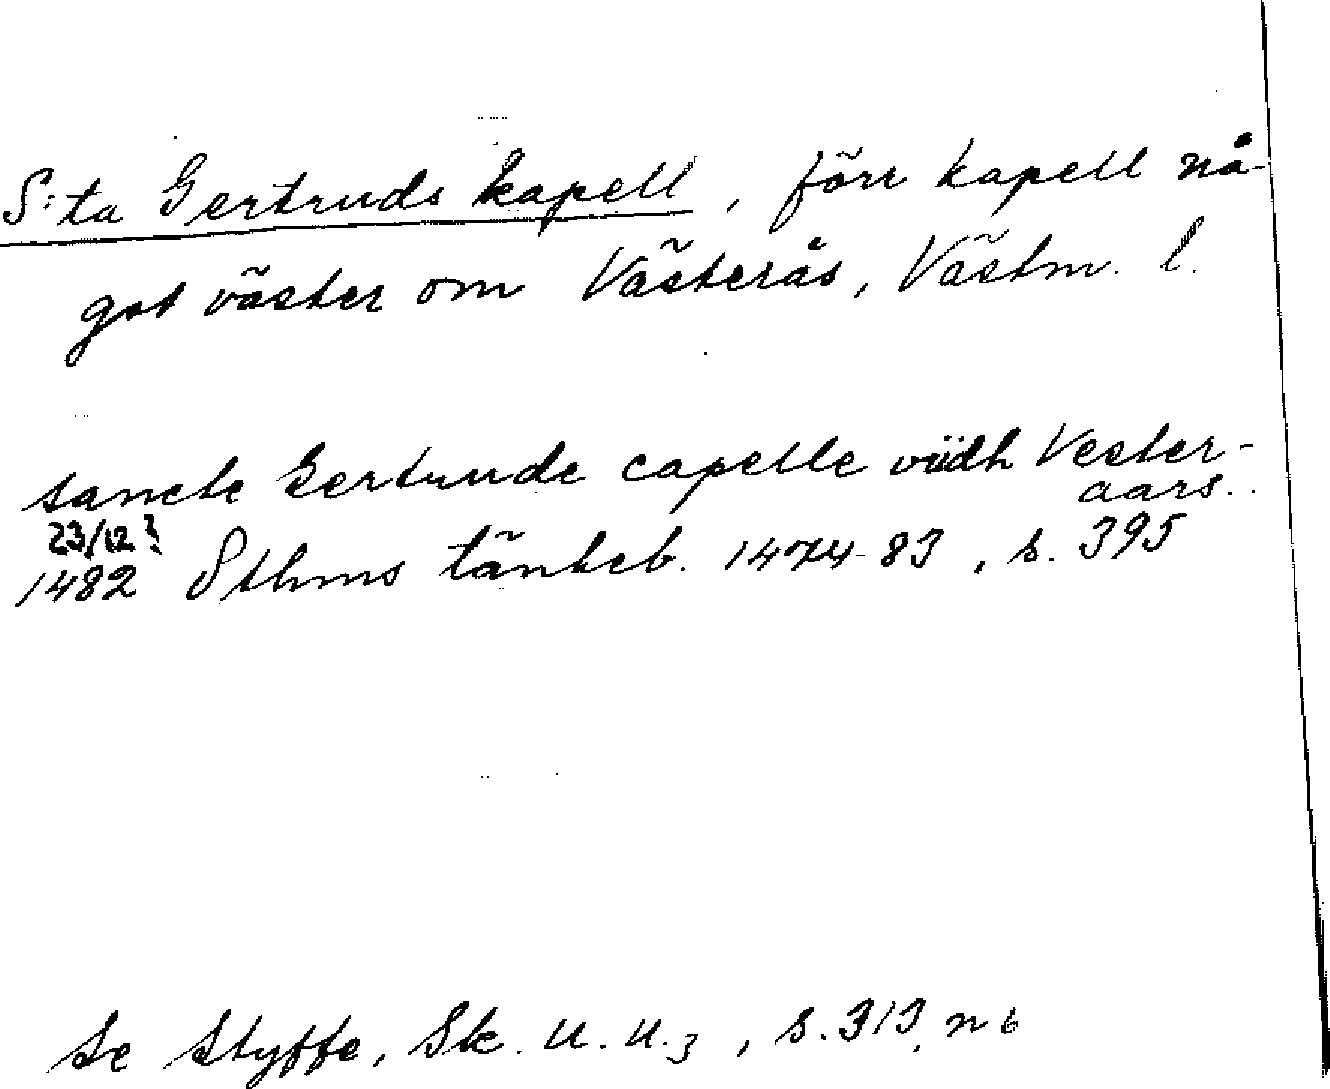 S:ta Gertruds kapell, förr kapell nå-
got väster om Västerås, Västm. l.
sancte Gertrude capelle viidh Vester-
aars..
23/12?
1482 Sthms tänkeb. 1474-83, s. 395
Se Styffe, Sk. u. u.3, s. 313, n 6